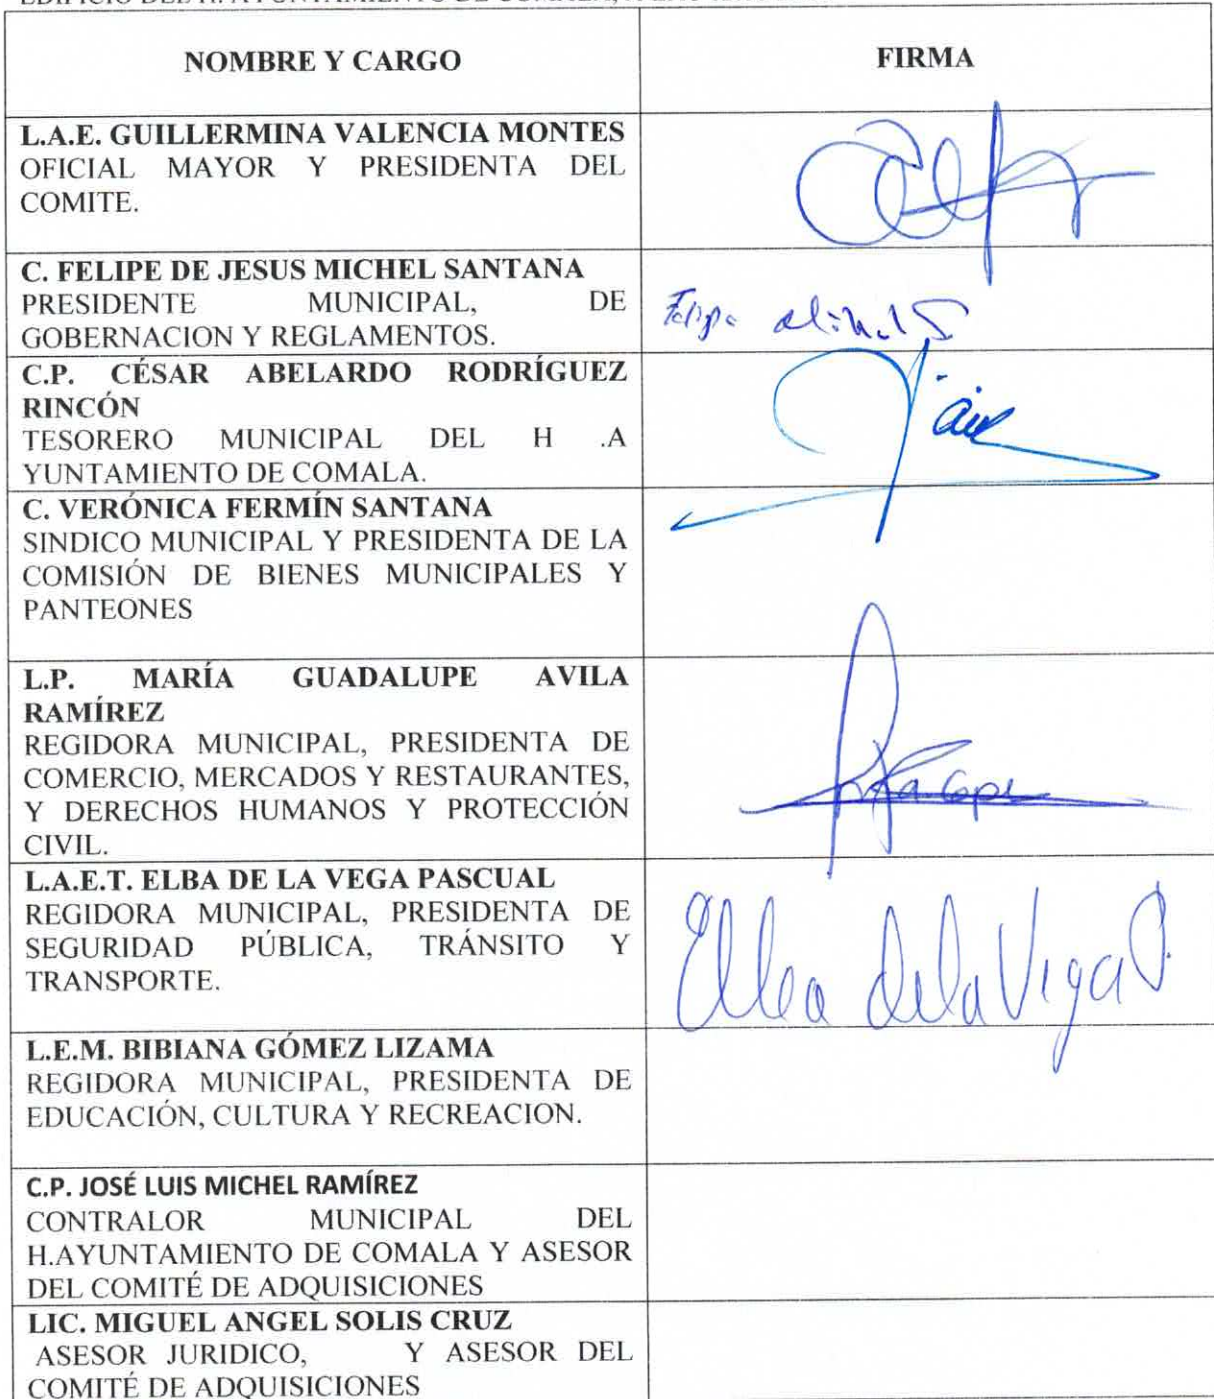 EDIFICIO DEL H. AYUNTAMIENTO DE COMALA,
NOMBRE Y CARGO
FIRMA
L.A.E. GUILLERMINA VALENCIA MONTES
OFICIAL MAYOR Y PRESIDENTA DEL
COMITE.
C. FELIPE DE JESUS MICHEL SANTANA
PRESIDENTE MUNICIPAL, DE
GOBERNACION Y REGLAMENTOS.
Felipe Michel S
C.P. CÉSAR ABELARDO RODRÍGUEZ
RINCÓN
TESORERO MUNICIPAL DEL H .A
YUNTAMIENTO DE COMALA.
C. VERÓNICA FERMÍN SANTANA
SINDICO MUNICIPAL Y PRESIDENTA DE LA
COMISIÓN DE BIENES MUNICIPALES Y
PANTEONES
L.P. MARÍA GUADALUPE AVILA
RAMÍREZ
REGIDORA MUNICIPAL, PRESIDENTA DE
COMERCIO, MERCADOS Y RESTAURANTES,
Y DERECHOS HUMANOS Y PROTECCIÓN
CIVIL.
L.A.E.T. ELBA DE LA VEGA PASCUAL
REGIDORA MUNICIPAL, PRESIDENTA DE
SEGURIDAD PÚBLICA, TRÁNSITO Y
TRANSPORTE.
Elba de la Vega P.
L.E.M. BIBIANA GÓMEZ LIZAMA
REGIDORA MUNICIPAL, PRESIDENTA DE
EDUCACIÓN, CULTURA Y RECREACION.
C.P. JOSÉ LUIS MICHEL RAMÍREZ
CONTRALOR MUNICIPAL DEL
H.AYUNTAMIENTO DE COMALA Y ASESOR
DEL COMITÉ DE ADQUISICIONES
LIC. MIGUEL ANGEL SOLIS CRUZ
ASESOR JURIDICO, Y ASESOR DEL
COMITÉ DE ADQUISICIONES